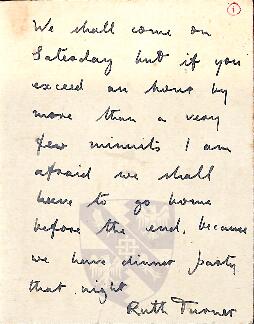 1
We shall come on
Saturday but if you
exceed an hour by
more than a very
few minutes I am
afraid we shall
have to go home
before the end, because
we have dinner party
that night
Ruth Turner